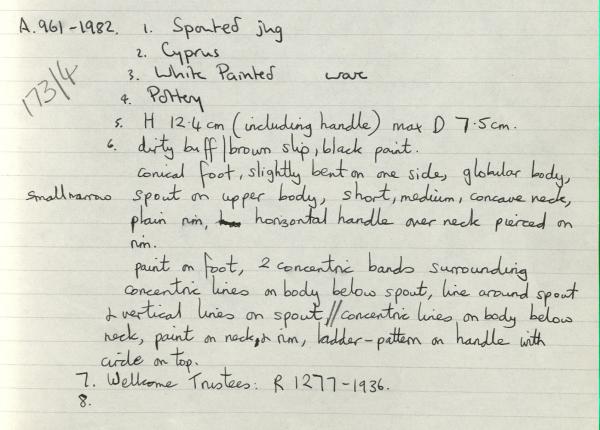 A.961-1982. 1. Spouted jug
2. Cyprus
3. White Painted ware
173/4
4. Pottery
5. H 12.4cm (including handle) max D 7.5cm.
6. dirty buff/brown slip, black paint.
conical foot, slightly bent on one side, globular body,
small narrow spout on upper body, short, medium, concave neck,
plain rim, horizontal handle over neck pierced on
rim.
paint on foot, 2 concentric bands surrounding
concentric lines on body below spout, line around spout
& vertical lines on spout, // concentric lines on body below
neck, paint on neck, & rim, ladder-pattern on handle with
circle on top.
7. Wellcome Trustees: R 1277-1936.
8.